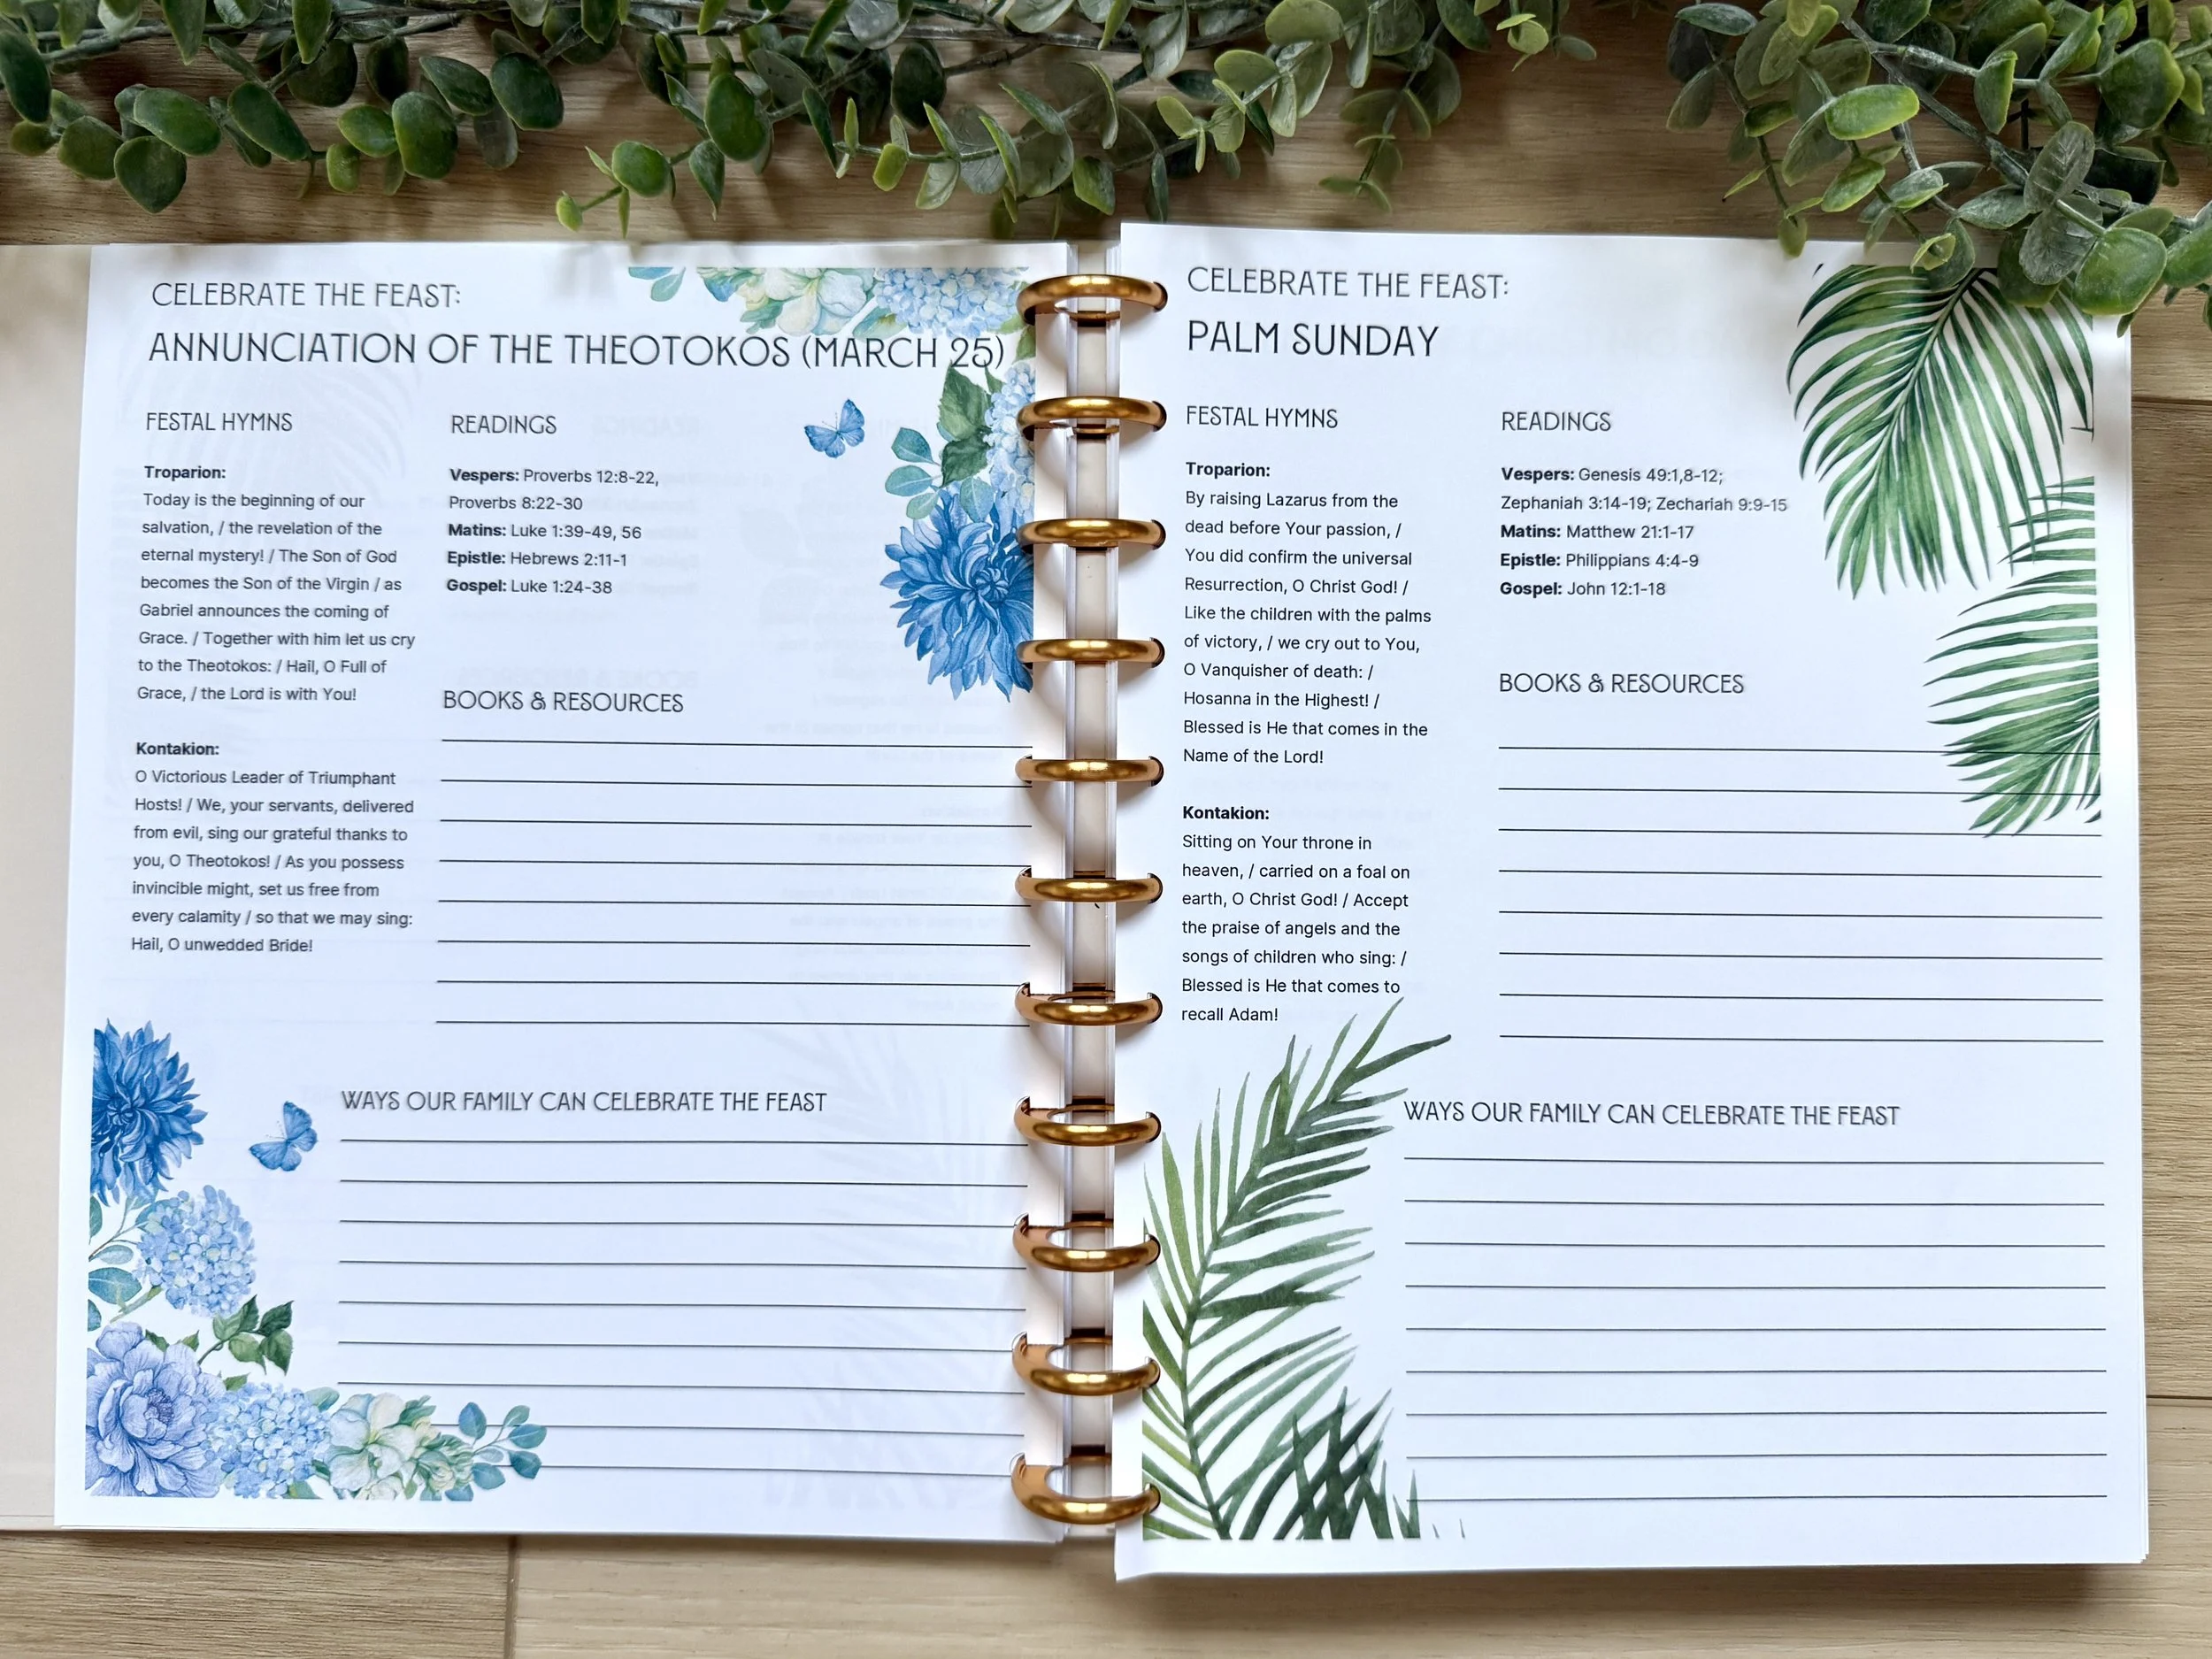 CELEBRATE THE FEAST:
ANNUNCIATION OF THE THEOTOKOS (MARCH 25)
FESTAL HYMNS
Troparion:
Today is the beginning of our
salvation, / the revelation of the
eternal mystery! / The Son of God
becomes the Son of the Virgin / as
Gabriel announces the coming of
Grace. / Together with him let us cry
to the Theotokos: / Hail, O Full of
Grace, / the Lord is with You!
Kontakion:
O Victorious Leader of Triumphant
Hosts! / We, your servants, delivered
from evil, sing our grateful thanks to
you, O Theotokos! / As you possess
invincible might, set us free from
every calamity / so that we may sing:
Hail, O unwedded Bride!
READINGS
Vespers: Proverbs 12:8-22,
Proverbs 8:22-30
Matins: Luke 1:39-49, 56
Epistle: Hebrews 2:11-1
Gospel: Luke 1:24-38
BOOKS & RESOURCES
WAYS OUR FAMILY CAN CELEBRATE THE FEAST
CELEBRATE THE FEAST:
PALM SUNDAY
FESTAL HYMNS
Troparion:
By raising Lazarus from the
dead before Your passion, /
You did confirm the universal
Resurrection, O Christ God! /
Like the children with the palms
of victory, / we cry out to You,
O Vanquisher of death: /
Hosanna in the Highest! /
Blessed is He that comes in the
Name of the Lord!
Kontakion:
Sitting on Your throne in
heaven, / carried on a foal on
earth, O Christ God! / Accept
the praise of angels and the
songs of children who sing: /
Blessed is He that comes to
recall Adam!
READINGS
Vespers: Genesis 49:1,8-12;
Zephaniah 3:14-19; Zechariah 9:9-15
Matins: Matthew 21:1-17
Epistle: Philippians 4:4-9
Gospel: John 12:1-18
BOOKS & RESOURCES
WAYS OUR FAMILY CAN CELEBRATE THE FEAST